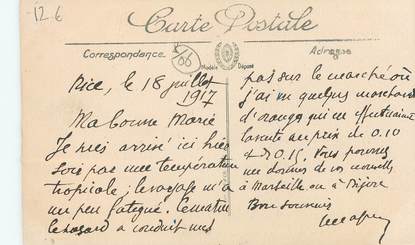 12.6
Carte Postale
Correspondance
166
Modèle Déposé
Adresse
Nice, le 18 juillet
1917
Ma bonne Marie
Je suis arrivé ici hier
soir par une température
tropicale ; le voyage m'a
un peu fatigué. Ce matin
le hasard a conduit mes
pas sur le marché où
j'ai vu quelques marchands
d'oranges qui en
la vente au prix de 0.10
et 0.15. Vous pouvez
me donner de vos nouvelles
à Marseille ou à Dijon
Bon souvenir